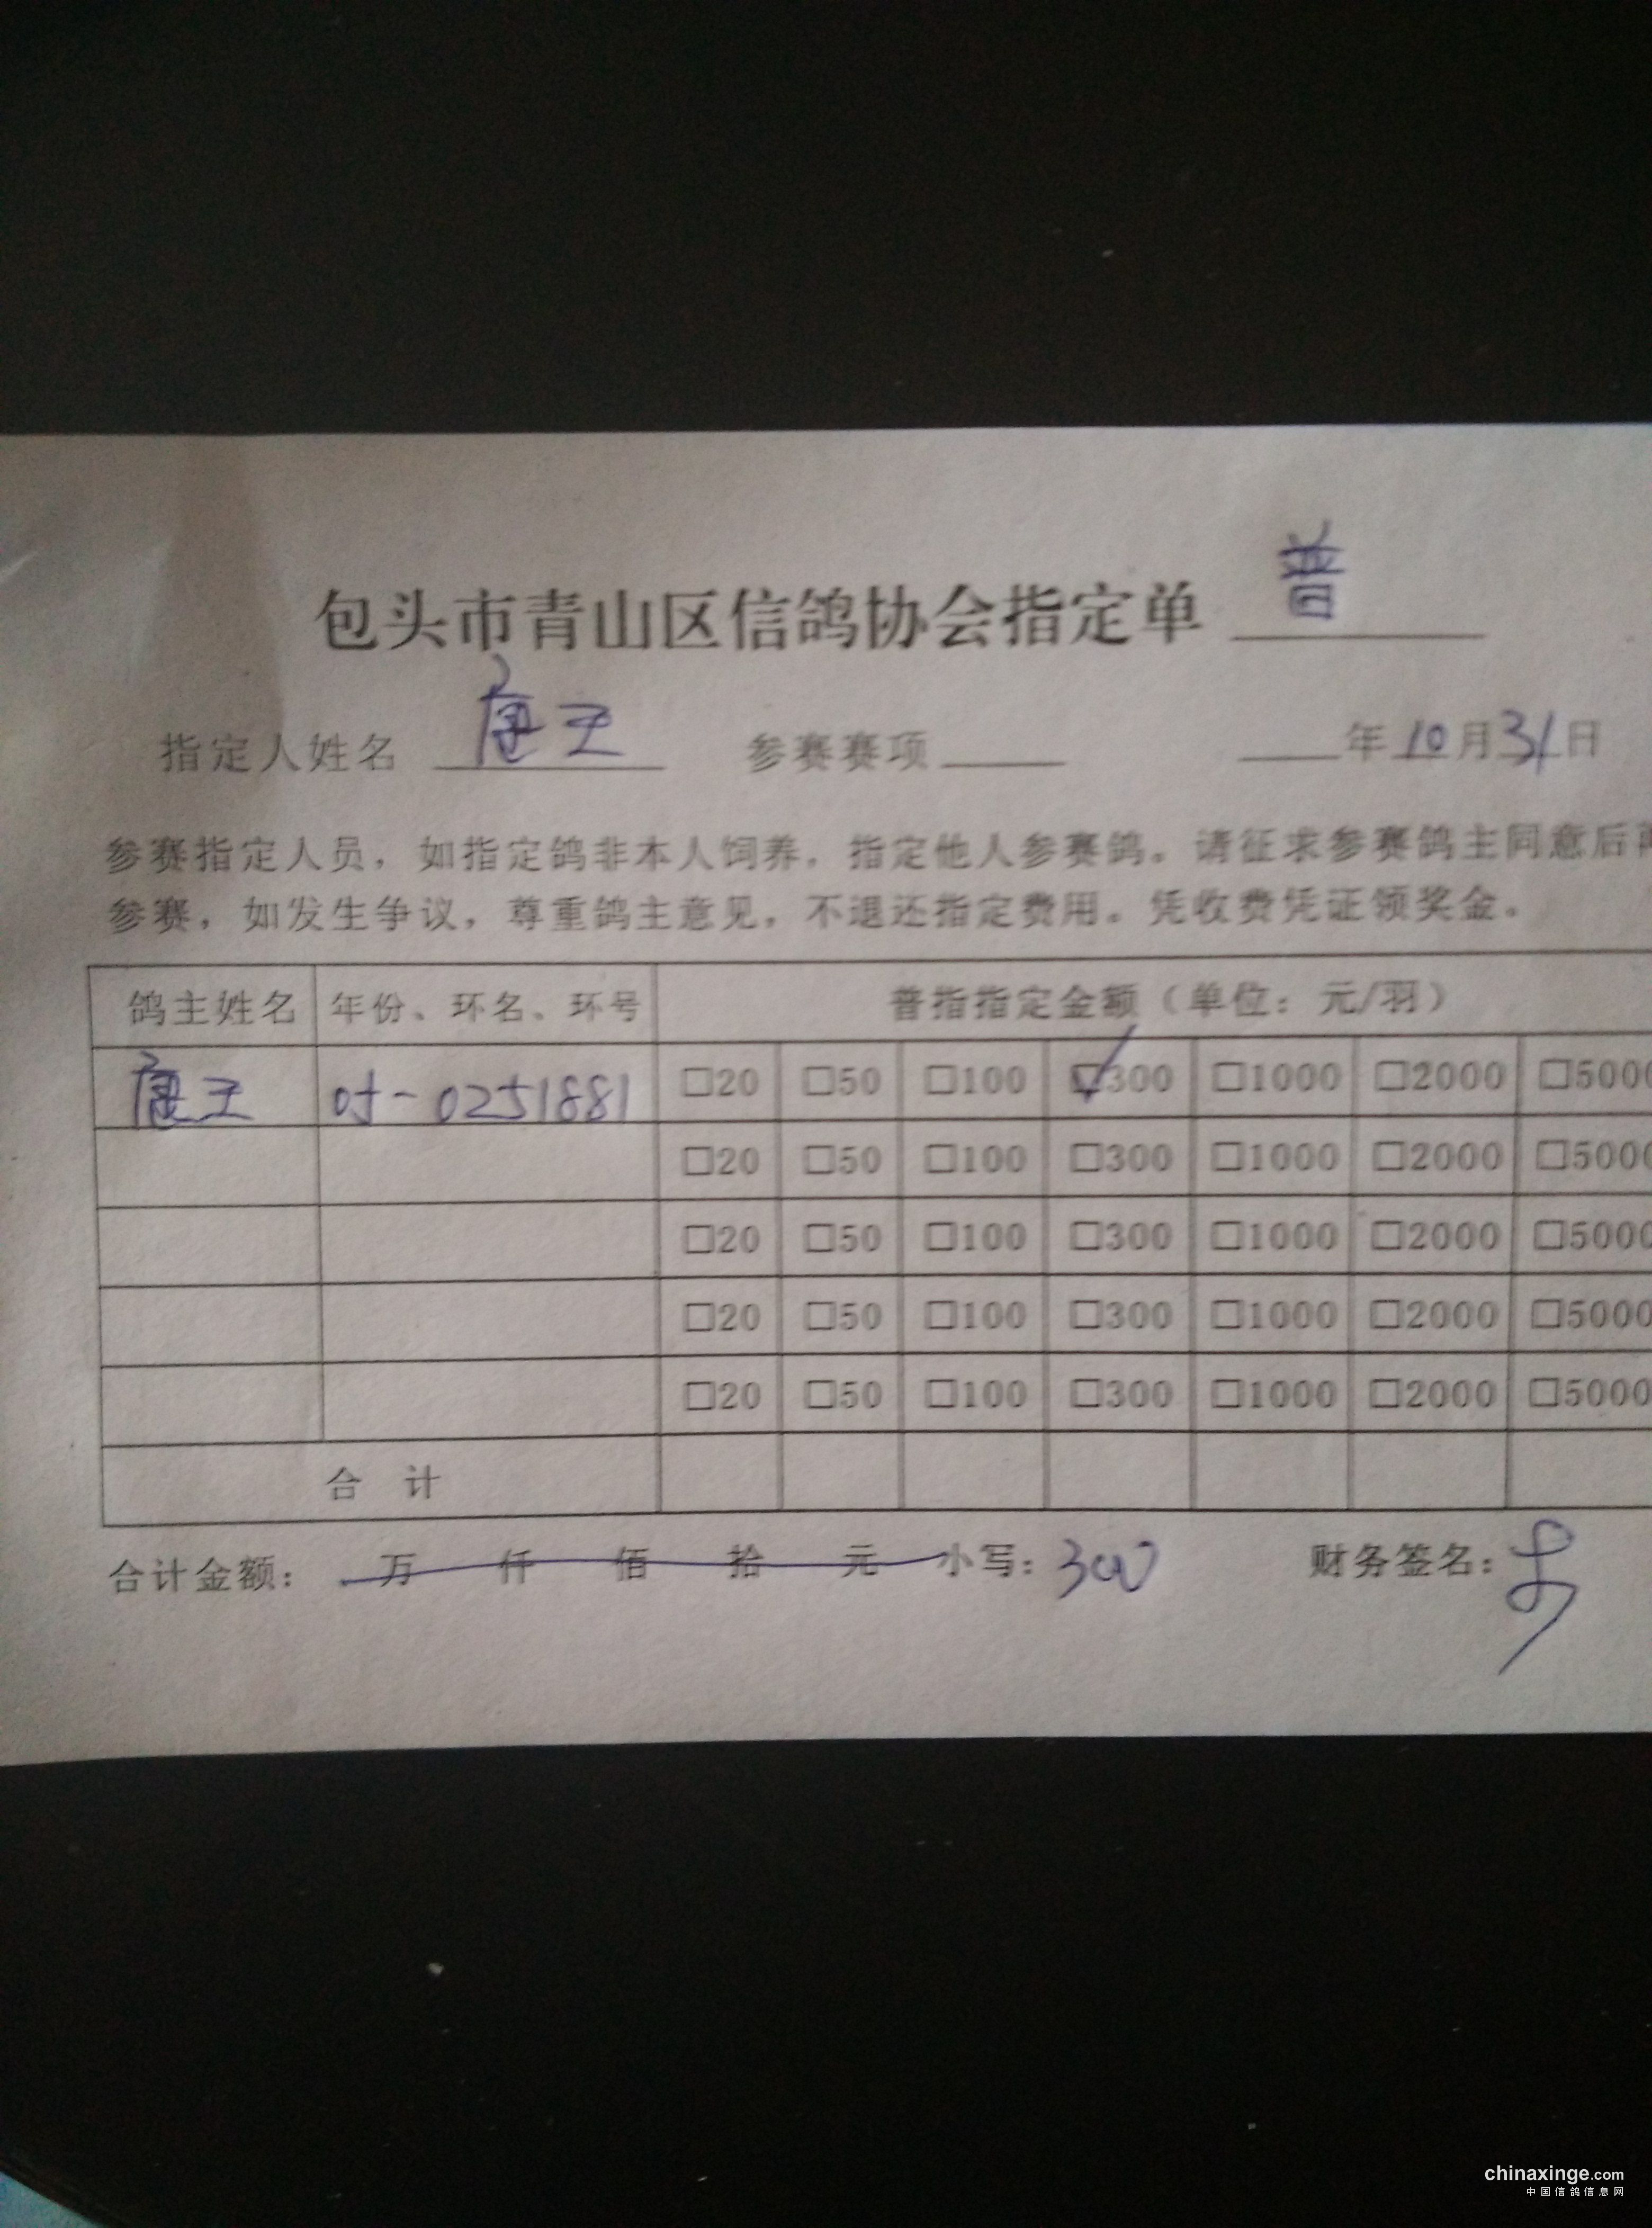 包头市青山区信鸽协会指定单 普
指定人姓名 参赛赛项 年 10 月 31 日
参赛指定人员，如指定鸽非本人饲养，指定他人参赛鸽。请征求参赛鸽主同意后再
参赛，如发生争议，尊重鸽主意见，不退还指定费用。凭收费凭证领奖金。
鸽主姓名 年份、环名、环号 普指指定金额（单位：元/羽）
0251881 □20 □50 □100 ☑300 □1000 □2000 □5000
□20 □50 □100 □300 □1000 □2000 □5000
□20 □50 □100 □300 □1000 □2000 □5000
□20 □50 □100 □300 □1000 □2000 □5000
□20 □50 □100 □300 □1000 □2000 □5000
合 计
合计金额： 万 仟 佰 拾 元 小写：300 财务签名：
chinaxinge.com
中国信鸽信息网